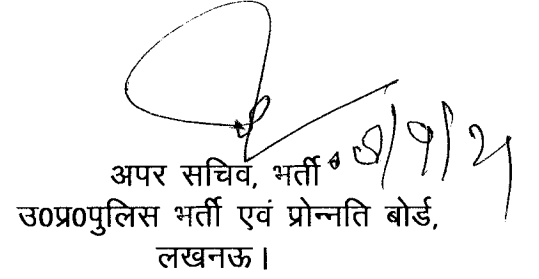 अपर सचिव, भर्ती
उ0प्र0पुलिस भर्ती एवं प्रोन्नति बोर्ड,
लखनऊ।